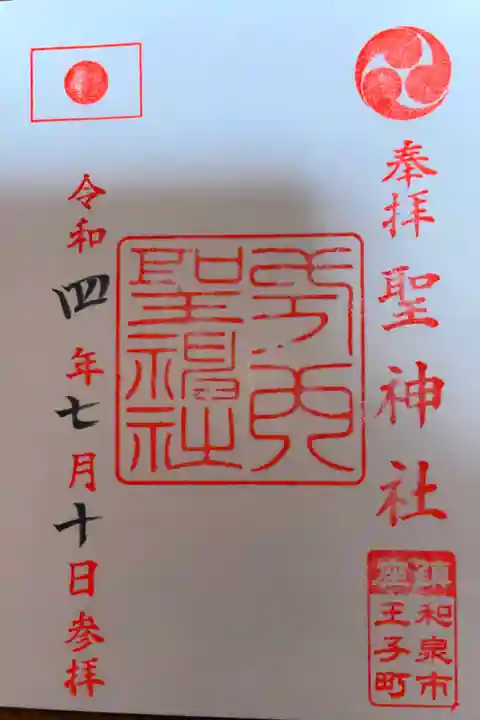 奉拝
聖神社
鎮座
和泉市
王子町
聖神社
令和四年七月十日参拝